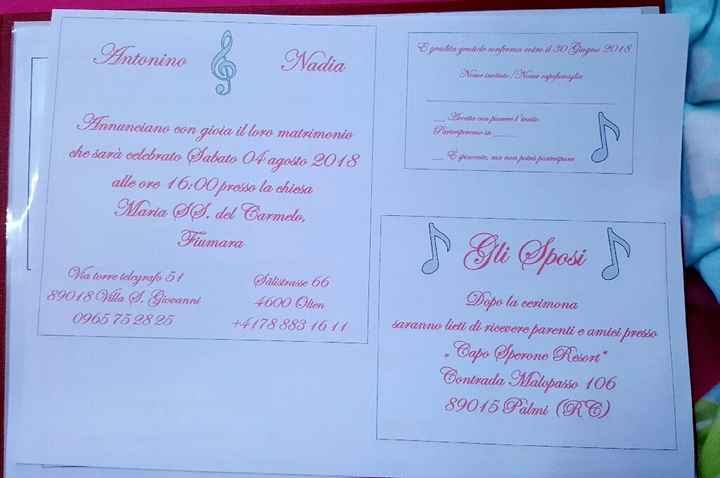 Antonino Nadia
Annunciano con gioia il loro matrimonio
che sarà celebrato Sabato 04 agosto 2018
alle ore 16:00 presso la chiesa
Maria SS. del Carmelo,
Fiumara
Via torre telegrafo 51
89018 Villa S. Giovanni
0965 75 28 25
Sälistrasse 66
4600 Olten
+4178 883 16 11
È gradita gentile conferma entro il 30 Giugno 2018
Nome invitato / Nome capofamiglia
__ Accetta con piacere l'invito
Parteciperemo in ____
__ È spiacente, ma non potrà partecipare
Gli Sposi
Dopo la cerimona
saranno lieti di ricevere parenti e amici presso
„Capo Sperone Resort“
Contrada Malopasso 106
89015 Palmi (RC)